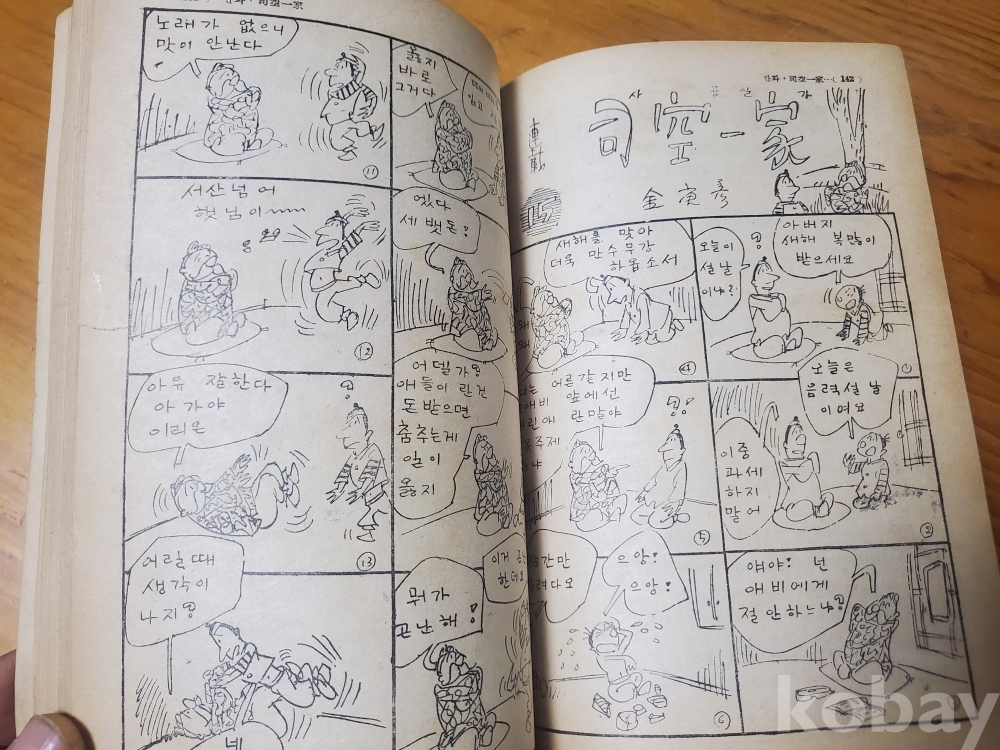 만화·司空一家…(142)
사 공 일 가
司空一家
連載
15
金庚彦
아버지
새해 복많이
받으세요
오늘이
설날
이냐?
①
오늘은
음력설 날
이여요
이중
과세
하지
말어
②
얘야! 넌
애비에게
절 안하느냐?
새해를 맞아
더욱 만수무강
하옵소서
④
어른같지만
애비 앞에선
란말야
⑤
으앙!
으앙!
⑥
만화·司空一家
옳지
바로
그거다
옜다
세뱃돈!
어델가?
애들이란건
돈받으면
춤추는게
일이
옳지
이거
한데요
뭐가
고난해!
노래가 없으니
맛이 안난다
⑪
서산넘어
햇님이
⑫
아유 잘한다
아가야
이리온
⑬
어릴때
생각이
나지?
네
kobay